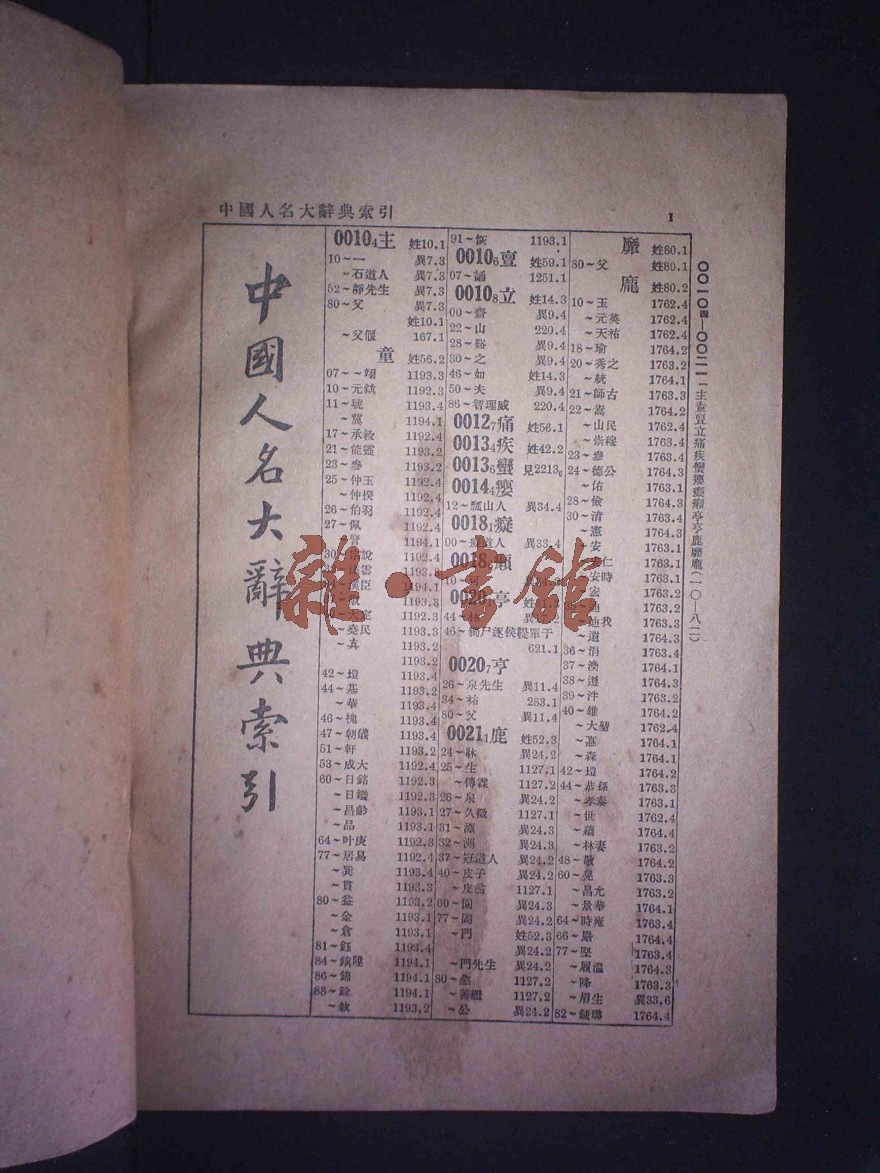 中國人名大辭典索引
1
中國人名大辭典索引
0010₄主 姓10.1
10~一 異7.3
~石道人 異7.3
52~靜先生 異7.3
80~父 異7.3
姓10.1
~父偃 167.1
童 姓56.2
07~~翊 1193.3
10~元鎮 1192.3
11~琥 1193.4
~冀 1194.1
17~承敘 1192.4
21~能靈 1193.2
23~參 1193.2
25~仲玉 1192.4
~仲揆 1192.4
26~伯羽 1192.4
27~佩 1192.4
1194.1
1192.4
1194.1
1193.3
1192.3
~堯民 1193.3
~真 1193.2
1193.2
42~塏 1193.4
44~基 1193.2
~華 1193.4
46~槐 1193.4
47~朝儀 1193.4
51~軒 1193.2
53~成大 1192.4
60~日銘 1192.3
~日鑑 1192.3
~昌齡 1193.1
~品 1193.1
64~叶庚 1192.3
77~居易 1192.4
~巽 1193.4
~貫 1193.3
80~益 1193.2
~金 1193.1
~倉 1193.1
81~鈺 1193.4
84~鎮陞 1194.1
86~錦 1194.1
88~銓 1194.1
~敘 1193.2
91~恢 1193.1
0010₆亶 姓59.1
07~誦 1251.1
0010₈立 姓14.3
00~齋 異9.4
22~山 220.4
28~谿 異9.4
30~之 異9.4
46~如 姓14.3
50~夫 異9.4
86~智理威 220.4
0012₇痛 姓56.1
0013₄疾 姓42.2
0013₆蠻 見2213₆
0014₄癭
12~瓢山人 異34.4
0018₁癡
00~ 道人 異33.4
雜·書館
44~林
46~獨尸逐侯鞮單于
621.1
0020₇亨
26~泉先生 異11.4
34~祐 283.1
80~父 異11.4
0021₁鹿 姓52.3
24~牀 異24.2
25~生 1127.1
~傳霖 1127.2
26~泉 異24.2
27~久徵 1127.1
31~潭 異24.3
32~洲 異24.3
37~冠道人 異24.2
40~皮子 異24.2
~皮翁 1127.1
60~園 異24.3
77~岡 異24.2
~門 姓52.3
異24.2
~門先生 異24.2
80~ 1127.2
~善繼 1127.2
~公 異24.2
姓80.1
80~父 姓80.1
龐 姓80.2
10~玉 1762.4
~元英 1762.4
~天祐 1762.4
18~瑜 1764.2
20~秀之 1763.2
~統 1764.1
21~師古 1763.3
22~嵩 1764.2
~山民 1762.4
~崇穆 1763.4
23~參 1763.4
24~德公 1764.3
~佑 1763.1
28~儉 1764.3
30~清 1763.4
~憲 1764.3
~安 1763.1
1763.1
~安時 1763.1
~宏 1763.2
~迪我 1763.3
~遺 1764.3
36~涓 1763.4
37~渙 1764.1
38~道 1764.3
39~泮 1763.2
40~雄 1764.2
~大堃 1762.4
~憙 1764.1
~森 1764.1
42~塏 1764.2
44~恭孫 1763.3
~孝泰 1763.1
~世 1762.4
~蘊 1764.4
~林妻 1763.2
48~敬 1764.2
60~晃 1763.3
~昌允 1763.2
~景華 1764.1
64~時雍 1763.4
66~嚴 1764.4
77~堅 1763.4
~履溫 1764.3
~降 1763.3
~眉生 異33.6
82~鍾璐 1764.4